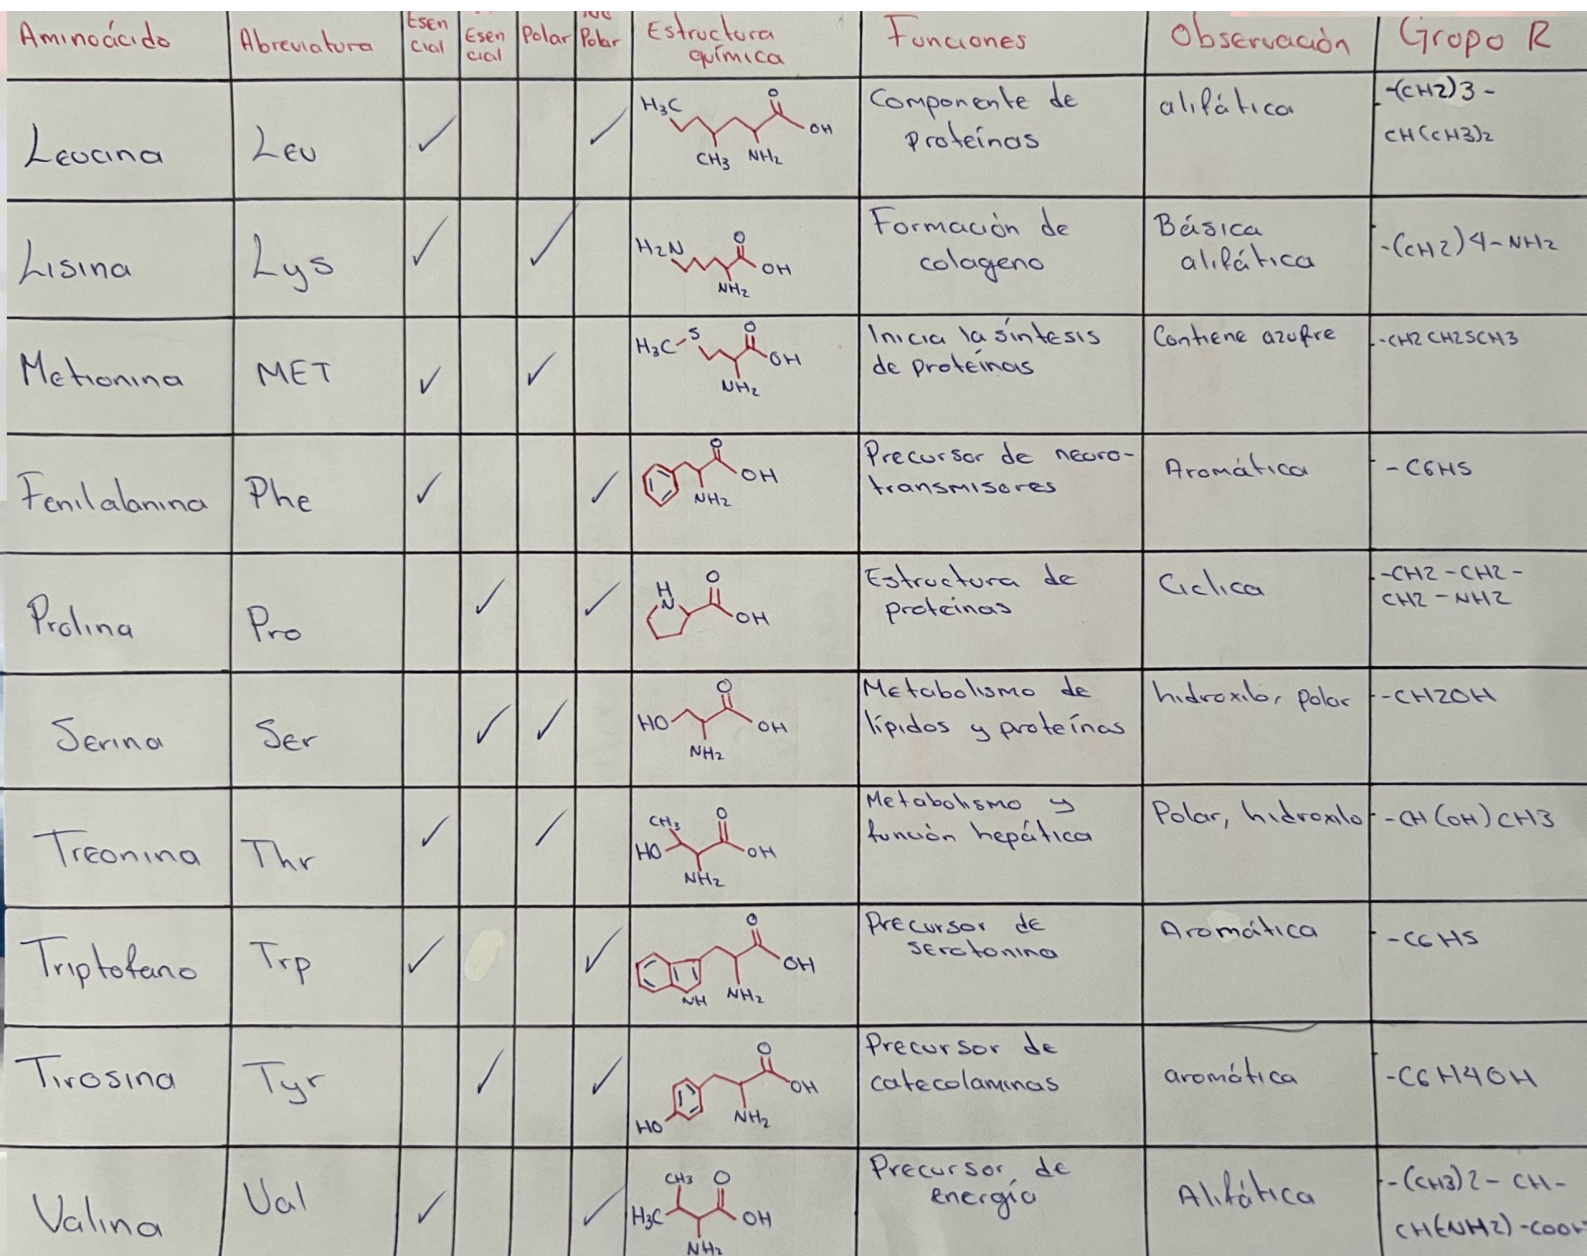 Aminoácido Abreviatura Esen cial Esen cial Polar Polar Estructura química Funciones Observación Grupo R
Leucina Leu ✓ ✓ H3C O OH CH3 NH2 Componente de proteínas alifática -(CH2)3-
CH(CH3)2
Lisina Lys ✓ ✓ H2N O OH NH2 Formación de colageno Básica alifática -(CH2)4-NH2
Metionina MET ✓ ✓ H3C S O OH NH2 Inicia la síntesis de proteínas Contiene azufre -CH2CH2SCH3
Fenilalanina Phe ✓ ✓ O OH NH2 Precursor de neuro-
transmisores Aromática -C6H5
Prolina Pro ✓ ✓ H N O OH Estructura de proteínas Ciclica -CH2-CH2-
CH2-NH2
Serina Ser ✓ ✓ HO O OH NH2 Metabolismo de lípidos y proteínas hidroxilo, polar -CH2OH
Treonina Thr ✓ ✓ CH3 HO O OH NH2 Metabolismo y función hepática Polar, hidroxilo -CH(OH)CH3
Triptofano Trp ✓ ✓ NH O OH NH2 Precursor de serotonina Aromática -C6H5
Tirosina Tyr ✓ ✓ HO O OH NH2 Precursor de catecolaminas aromática -C6H4OH
Valina Val ✓ ✓ CH3 H3C O OH NH2 Precursor de energía Alifática -(CH3)2-CH-
CH(NH2)-COOH